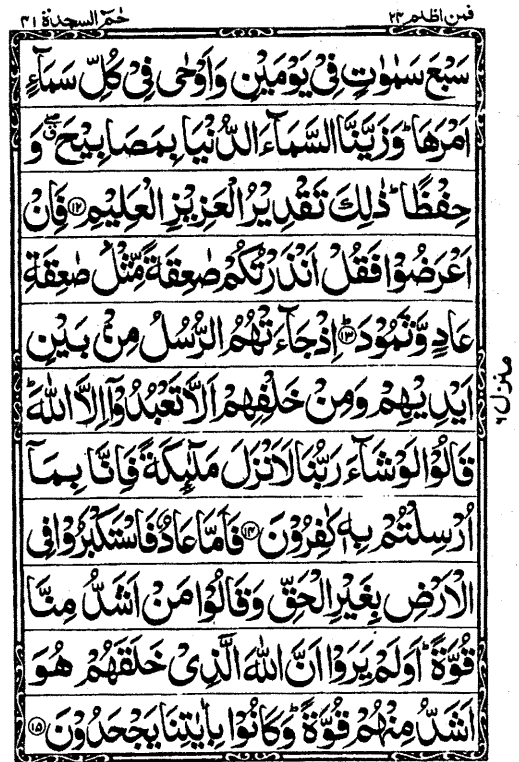 فمن اظلم ٢٤
حٰمٓ السجدة ٤١
سَبْعَ سَمٰوَاتٍ فِیْ یَوْمَیْنِ وَاَوْحٰی فِیْ كُلِّ سَمَآءٍ
اَمْرَهَا ؕ وَزَیَّنَّا السَّمَآءَ الدُّنْیَا بِمَصَابِیْحَ ۖۗ وَ
حِفْظًا ؕ ذٰلِكَ تَقْدِیْرُ الْعَزِیْزِ الْعَلِیْمِ ﴿۱۲﴾ فَاِنْ
اَعْرَضُوْا فَقُلْ اَنْذَرْتُكُمْ صٰعِقَةً مِّثْلَ صٰعِقَةِ
عَادٍ وَّثَمُوْدَ ؕ ﴿۱۳﴾ اِذْ جَآءَتْهُمُ الرُّسُلُ مِنْۢ بَیْنِ
اَیْدِیْهِمْ وَمِنْ خَلْفِهِمْ اَلَّا تَعْبُدُوْۤا اِلَّا اللّٰهَ ؕ
قَالُوْا لَوْ شَآءَ رَبُّنَا لَاَنْزَلَ مَلٰٓئِكَةً فَاِنَّا بِمَاۤ
اُرْسِلْتُمْ بِهٖ كٰفِرُوْنَ ﴿۱۴﴾ فَاَمَّا عَادٌ فَاسْتَكْبَرُوْا فِی
الْاَرْضِ بِغَیْرِ الْحَقِّ وَقَالُوْا مَنْ اَشَدُّ مِنَّا
قُوَّةً ؕ اَوَلَمْ یَرَوْا اَنَّ اللّٰهَ الَّذِیْ خَلَقَهُمْ هُوَ
اَشَدُّ مِنْهُمْ قُوَّةً ؕ وَكَانُوْا بِاٰیٰتِنَا یَجْحَدُوْنَ ﴿۱۵﴾
منزل ٦